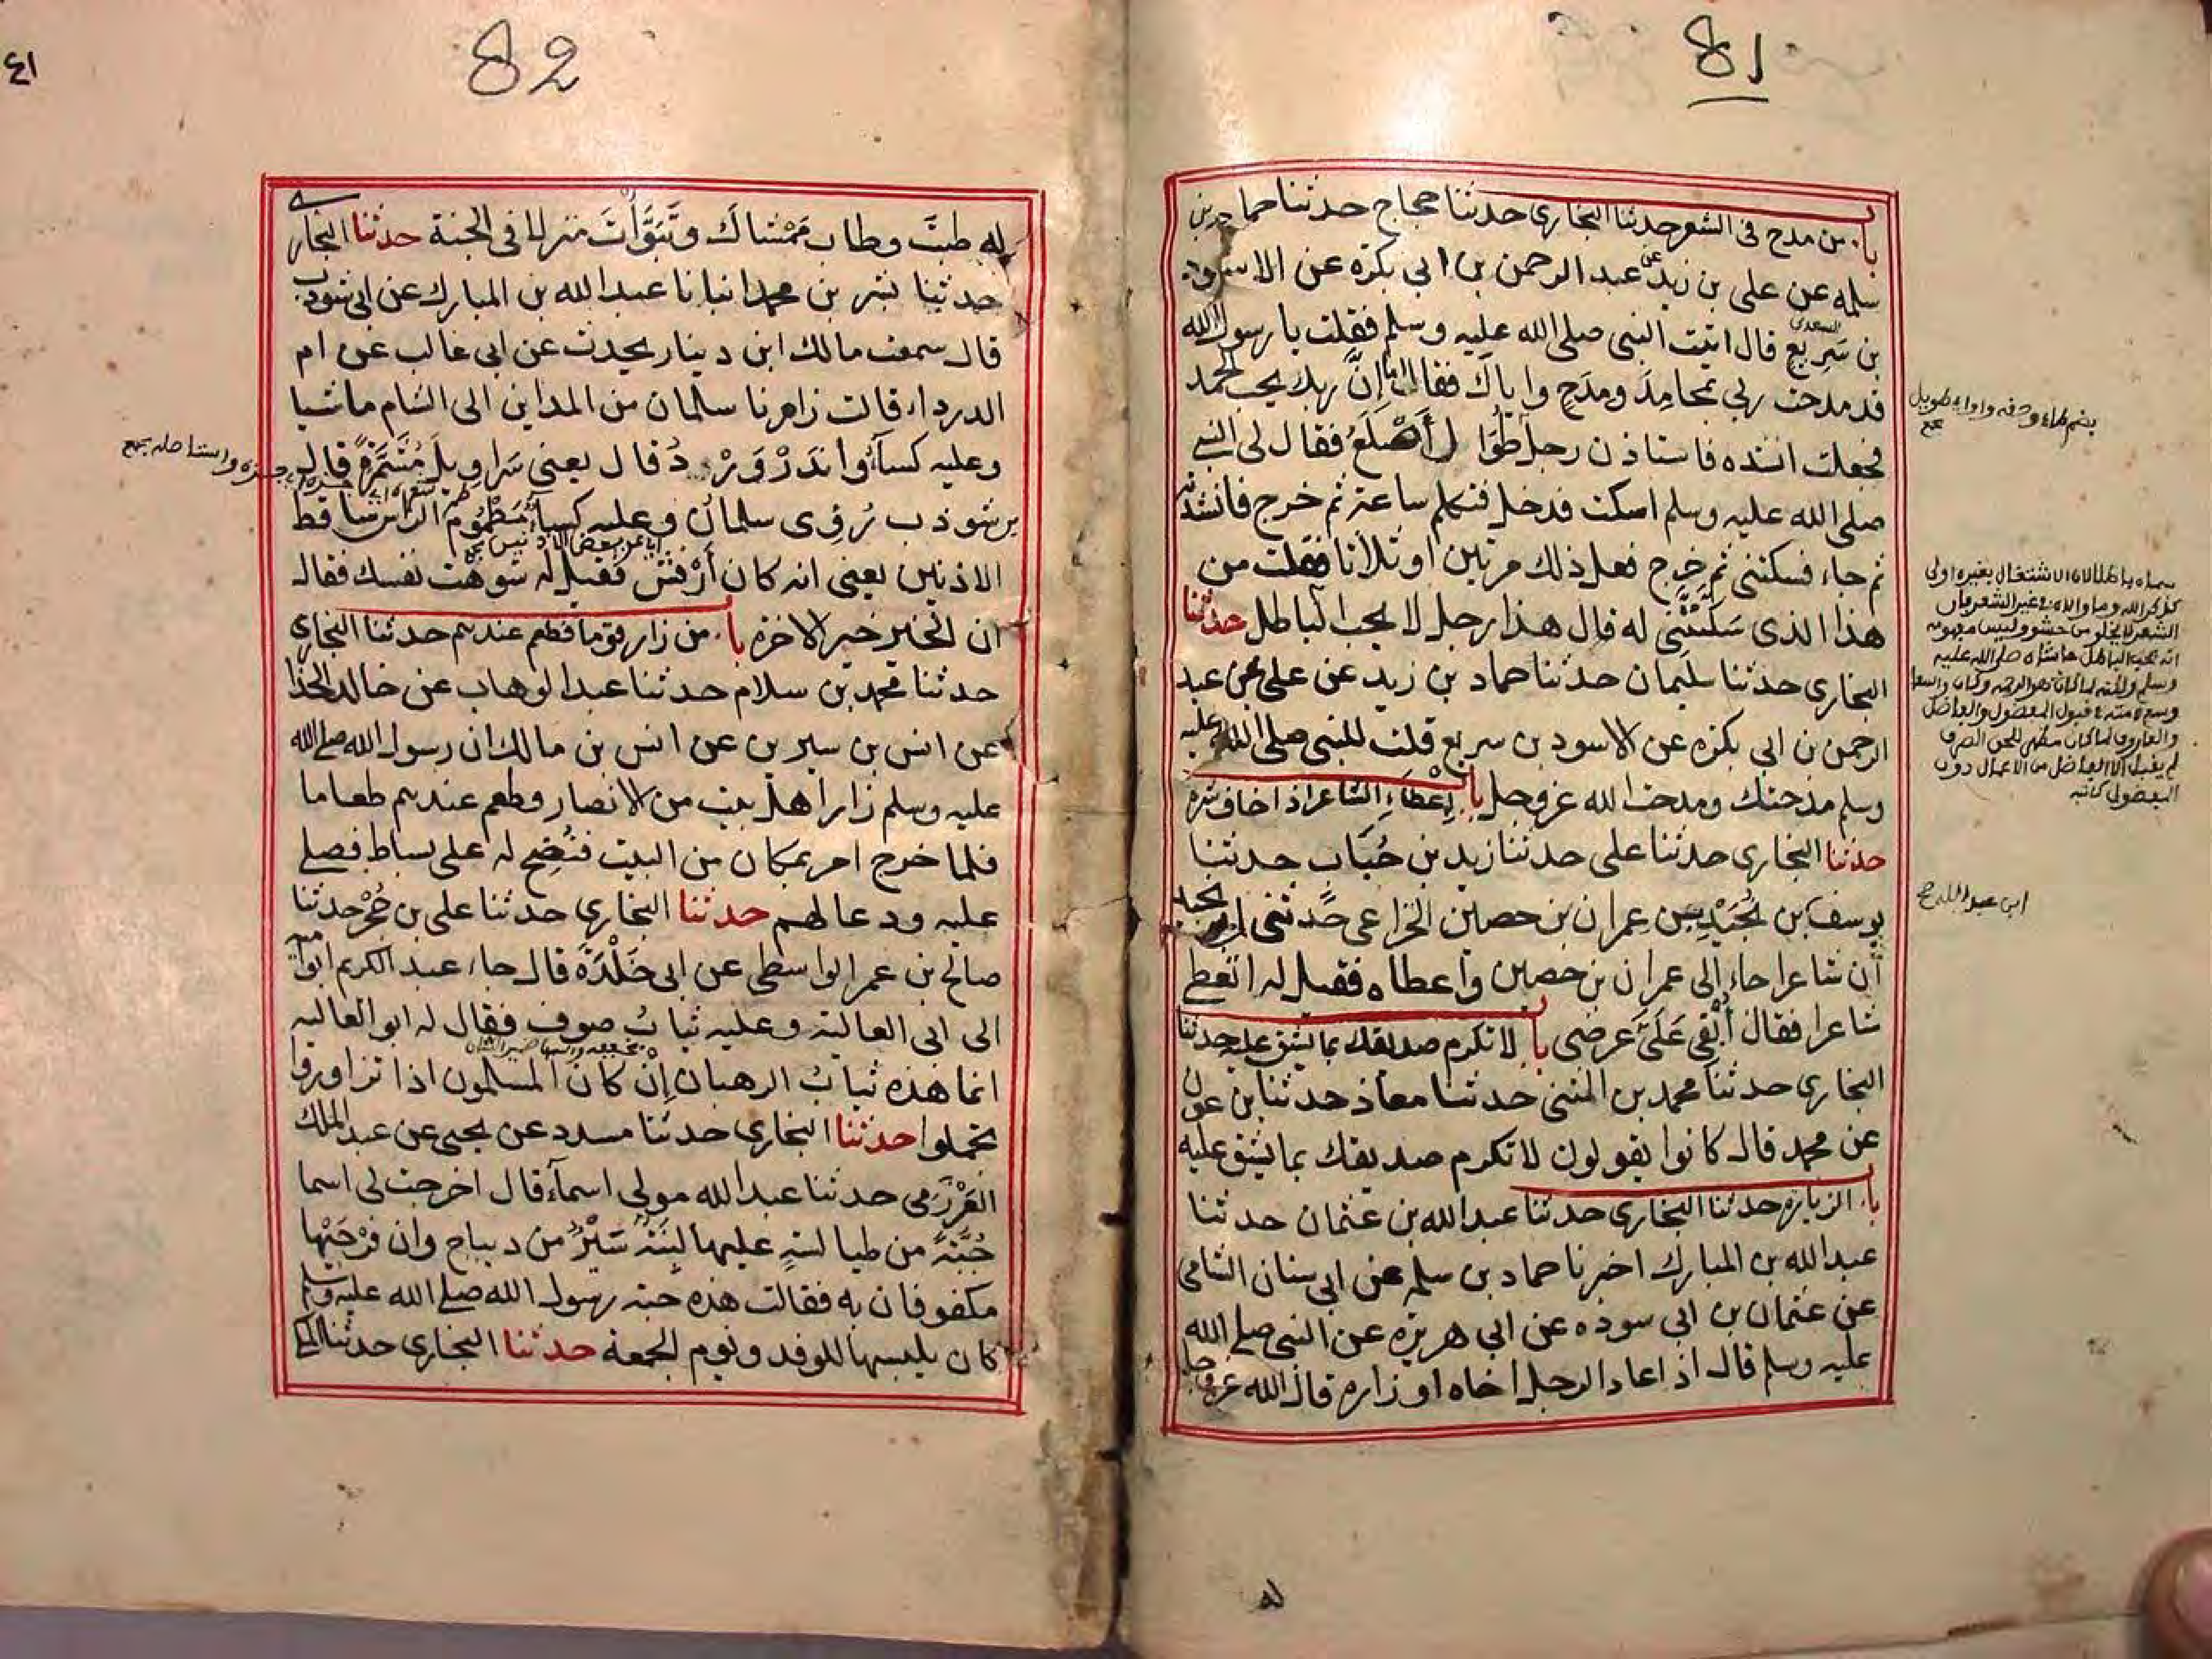 81
باب من مدح في الشعر حدثنا البخاري حدثنا حجاج حدثنا حماد بن
سلمه عن علي بن زيد عن عبد الرحمن بن ابي بكرة عن الاسود
بن سَرِيعٍ السعدي قال اتيت النبي صلى الله عليه وسلم فقلت يا رسول الله
قد مدحت ربي بمحامِدَ ومِدَحٍ واياكَ فقال اما اِنَّ ربك يحب الحمد
فجعلت انشده فاستاذن رجل طُوَال أَصْلَعُ فقال لي النبي
صلى الله عليه وسلم اسكت فدخل فتكلم ساعة ثم خرج فانشدته
ثم جاء فسكتني ثم خرج فعل ذلك مرتين او ثلاثا فقلت من
هذا الذي سَكَّتَّنِي له قال هذا رجل لا يحب الباطل حدثنا
البخاري حدثنا سليمان حدثنا حماد بن زيد عن علي عن عبد
الرحمن بن ابي بكره عن الاسود بن سريع قلت للنبي صلى الله عليه
وسلم مدحتك ومدحت الله عز وجل باب اِعْطَاءِ الشاعر اذا خاف شره
حدثنا البخاري حدثنا علي حدثنا زيد بن حُبَاب حدثنا
يوسف بن عبد الله بن نُجَيْد بن عمران بن حصين الخزاعي حدثني ابي نجيد
أن شاعرا جاء الى عمران بن حصين واعطاه فقيل له اتعطي
شاعرا فقال أُبْقِي عَلَىَّ عرضي باب لا تكرم صديقك بما يشق عليه حدثنا
البخاري حدثنا محمد بن المثنى حدثنا معاذ حدثنا بن عون
عن محمد قال كانوا يقولون لا تكرم صديقك بما يشق عليه
باب الزيارة حدثنا البخاري حدثنا عبد الله بن عثمان حدثنا
عبد الله بن المبارك اخبرنا حماد بن سلمه عن ابي سنان الشامي
عن عثمان بن ابي سوده عن ابي هريره عن النبي صلى الله
عليه وسلم قال اذا عاد الرجل اخاه او زاره قال الله عز وجل
له
ابن عبد الله صح
82
٤١
له طبتَ وطاب مَمْشاكَ وتَبَوَّأْتَ منزلا في الجنة حدثنا البخاري
حدثنا بشر بن محمد انبانا عبد الله بن المبارك عن ابن شوذب
قال سمعت مالك ابن دينار يحدث عن ابي غالب عن ام
الدرداء قالت زارنا سلمان من المداين الى الشام ماشيا
وعليه كساءٌ واندَرْوَرْدُ قال يعني سَراويلَ مُشَمَّرَةً قال
بن شوذب رُؤِي سلمانُ وعليه كساءٌ مَطْمُوم الراس ساقط
الاذنين يعني انه كان أَرْفَشَ فقيل له شوهْت نفسك فقال
ان الخير خير الاخرة باب من زار قوما فطعم عندهم حدثنا البخاري
حدثنا محمد بن سلام حدثنا عبد الوهاب عن خالد الحذا
عن انس بن سيرين عن انس بن مالك ان رسول الله صلى الله
عليه وسلم زار اهل بيت من الانصار وطعم عندهم طعاما
فلما خرج امر بمكان من البيت فنُضِحَ له على بساط فصلى
عليه ودعا لهم حدثنا البخاري حدثنا علي بن حُجْر حدثنا
صالح بن عمر الواسطي عن ابي خَلْدَةَ قال جاء عبد الكريم ابو اميه
الى ابي العالية وعليه ثيابُ صوف فقال له ابو العاليه
انما هذه ثيابُ الرهبان إنْ كان المسلمون اذا تزاوروا
تجملوا حدثنا البخاري حدثنا مسدد عن يحيى عن عبد الملك
العَرْزَمي حدثنا عبد الله مولى اسمآء قال اخرجت لي اسما
جُبَّةً من طيالسةٍ عليها لَبِنَةُ شَبْرٌ من ديباج وان فَرْجَيْها
مكفوفان به فقالت هذه جبة رسول الله صلى الله عليه وسلم
كان يلبسها للوفد ويوم الجمعة حدثنا البخاري حدثنا المكي